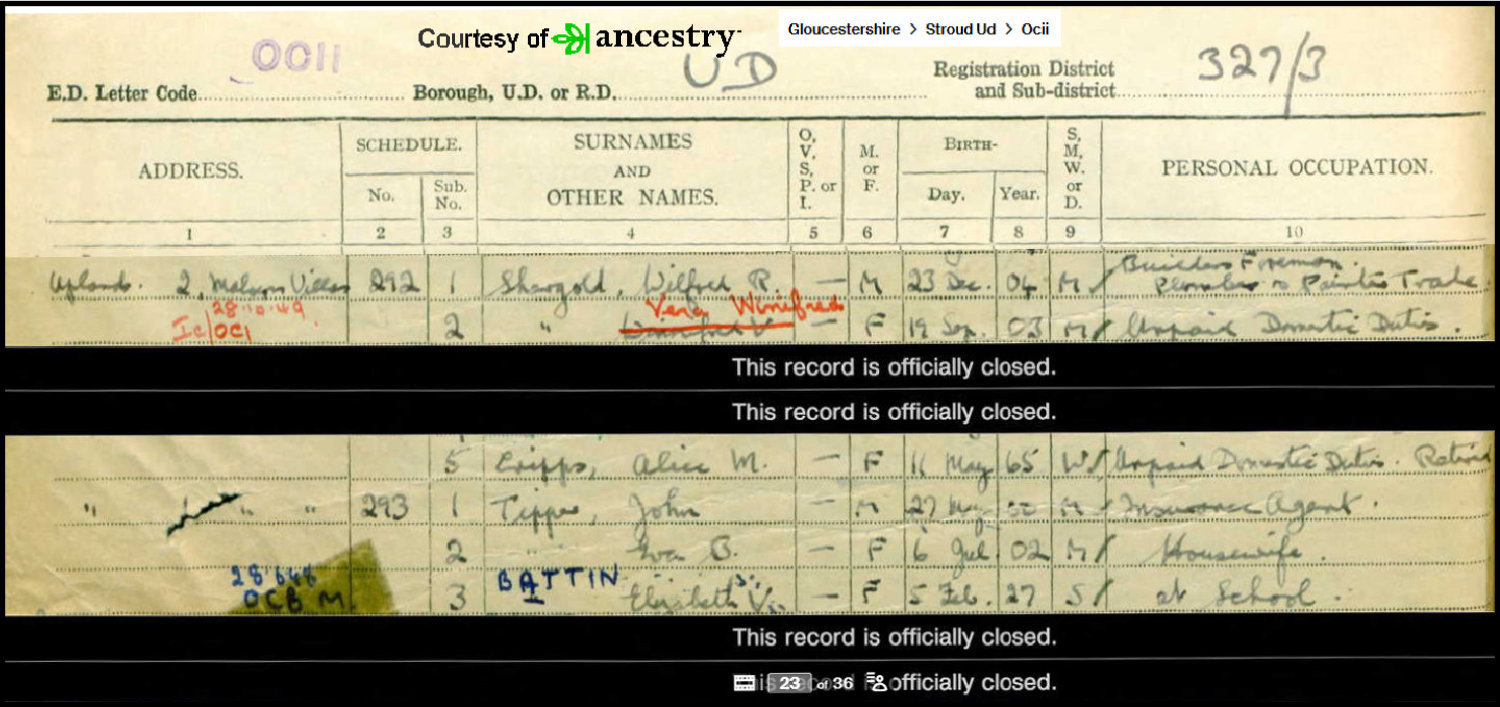 Courtesy of ancestry
Gloucestershire > Stroud Ud > Ocii
OCII
UD
327/3
E.D. Letter Code
Borough, U.D. or R.D.
Registration District and Sub-district
ADDRESS.
SCHEDULE.
No.
Sub. No.
SURNAMES AND OTHER NAMES.
O, V, S, P. or I.
M. or F.
BIRTH-
Day.
Year.
S, M, W. or D.
PERSONAL OCCUPATION.
1 2 3 4 5 6 7 8 9 10
Uplands. 2, Villas 292 1 Shargold, Wilfred R. — M 23 Dec. 04 M Builders Foreman. Plumber Trade.
28.10.49
Vera Winifred
2 " Winifred V — F 19 Sep. 03 M Unpaid Domestic Duties.
This record is officially closed.
This record is officially closed.
5 Cripps, Alice M. — F 11 May 65 W. Unpaid Domestic Duties. Retired
" 1 " " 293 1 John — M 27 M Insurance Agent.
2 " Eva B. — F 6 Jul 02 M Housewife.
BATTIN
OCB M
3 Elizabeth V. — F 5 Feb. 27 S at School.
This record is officially closed.
23 of 36
officially closed.